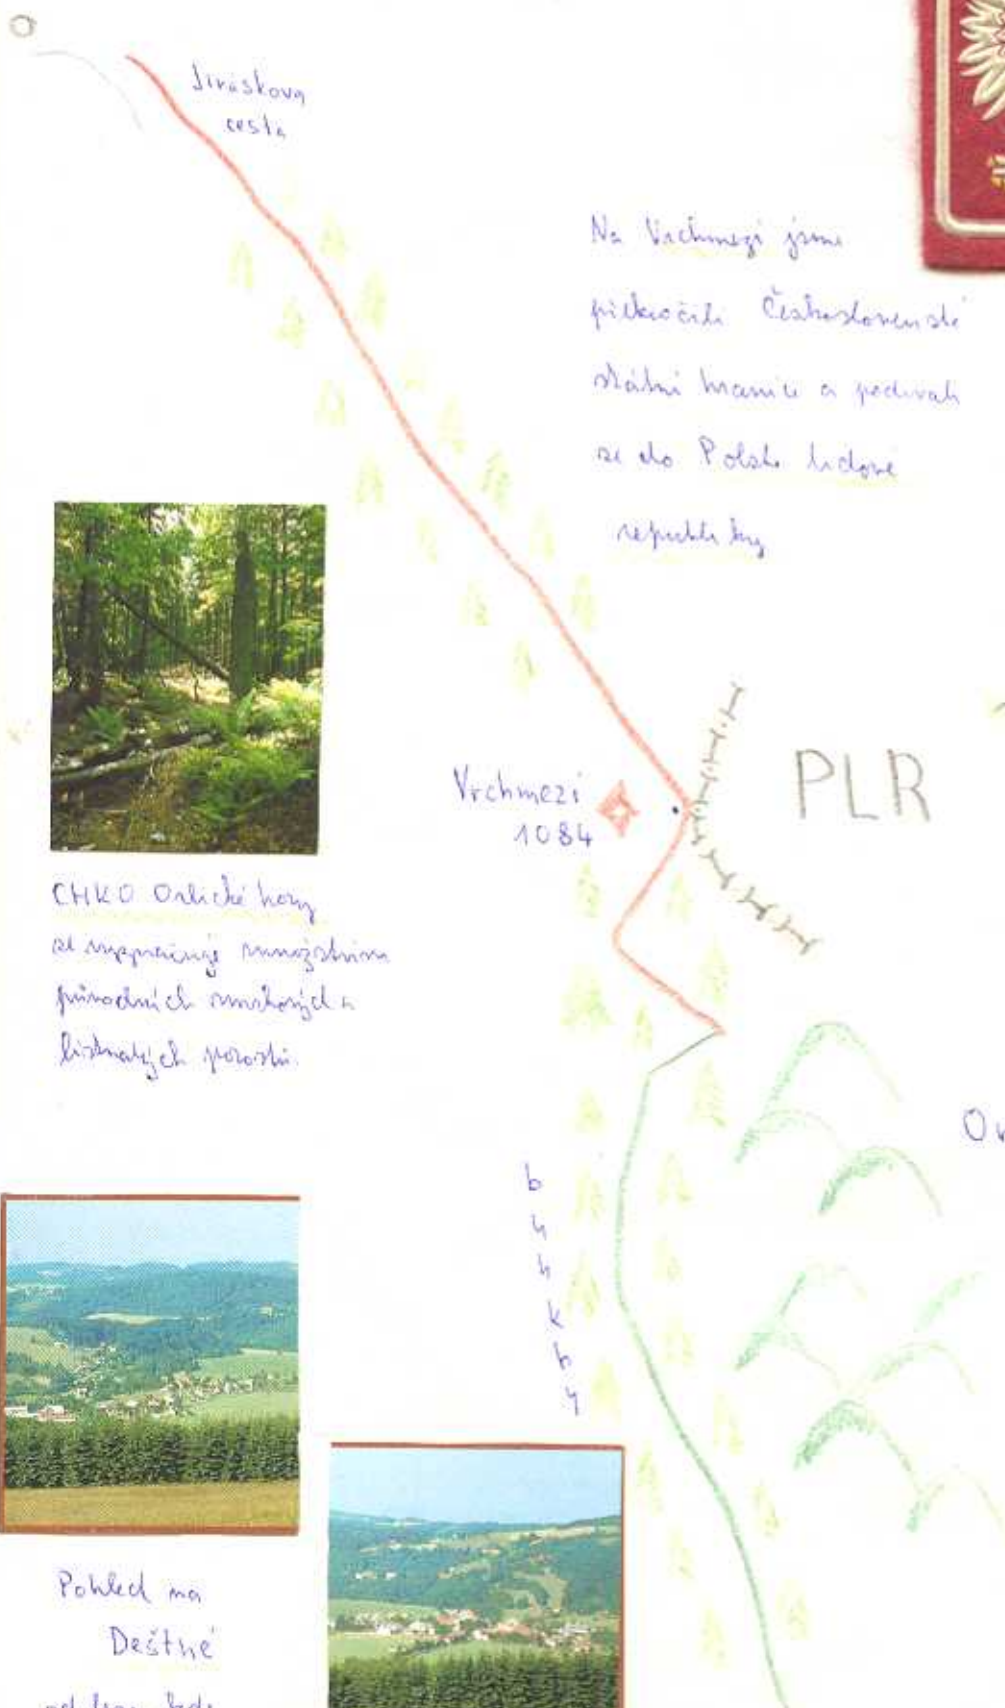 Jiráskova
cesta
Na Vrchmezí jsme
překročili Československé
státní hranice a podívali
se do Polské lidové
republiky
Vrchmezí
1084
PLR
CHKO Orlické hory
se vyznačuje množstvím
původních smrkových a
listnatých porostů.
b
u
n
k
b
y
Pohled na
Deštné
od